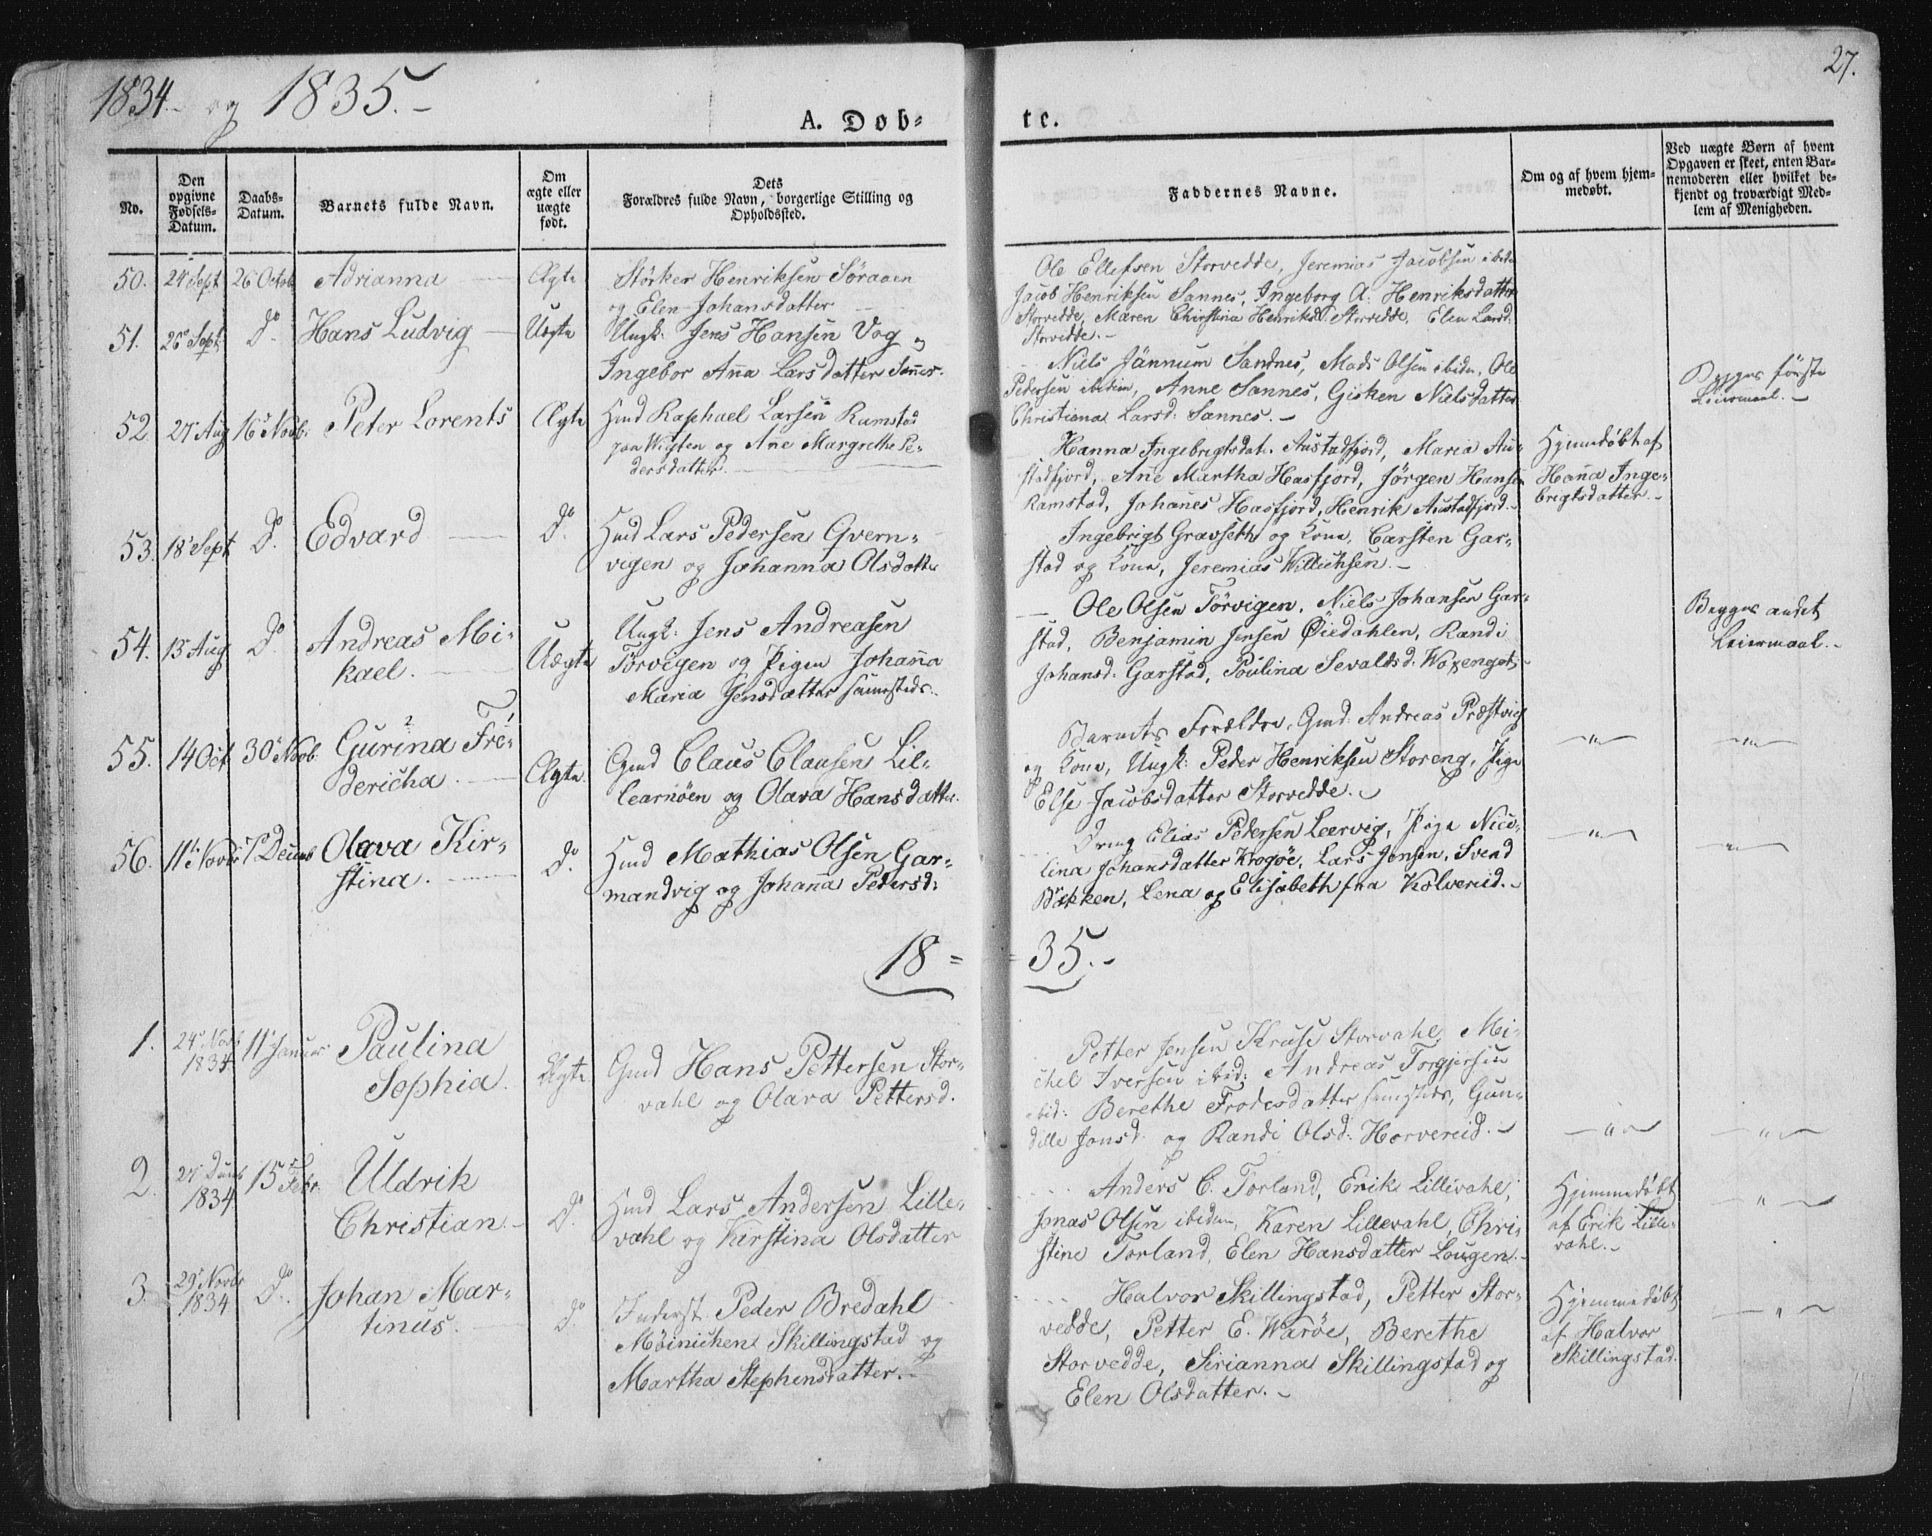 1834 og 1835.-
27.
A. Døb-
te.
No.
Den opgivne Fødsels-Datum.
Daabs-Datum.
Barnets fulde Navn.
Om ægte eller uægte født.
Dets Forældres fulde Navn, borgerlige Stilling og Opholdssted.
Faddernes Navne.
Om og af hvem hjemmedøbt.
Ved uægte Børn af hvem Opgaven er skeet, enten Barnemoderen eller hvilket bekjendt og troværdigt Medlem af Menigheden.
50. 24 Sept 26 Octob Adrianna Ægte
Störker Henriksen Söraaen
og Elen Johansdatter
Ole Ellefsen Storvedde, Jeremias Jacobsen ibid
Jacob Henriksen Sannes, Ingeborg A: Henriksdatter
Storvedde, Maren Christina Henriksd Storvedde, Elen Larsd.
Storvedde.-
51. 26 Sept Do Hans Ludvig Uægte
Ungk: Jens Hansen Vog og
Ingebor Anna Larsdatter Sannes.
Niels Jännum Sandnes, Mads Olsen ibiden, Ole
Pedersen ibidem, Anne Sannes, Gisken Nielsdatter
Christiana Larsd: Sannes.-
Begges förste
Leiermaal.-
52. 27 Aug 16 Novb: Peter Lorents Ægte
Hmd Raphael Larsen Ramstad
paa Vigten og Ane Margrethe Pe-
dersdatter.
Hanna Ingebrigtsdat. Austadfjord, Maria Au-
stadfjord, Ane Martha Hasfjord, Jörgen Hansen
Ramstad, Johanes Hasfjord, Henrik Austadfjord.-
Hjemmedöbt af
Hanna Inge-
brigtsdatter.-
53. 18 Sept Do Edvard Do.
Hmd Lars Pedersen Qvern-
vigen og Johanna Olsdatter
Ingebrigt Gravseth og Kone, Carsten Gar-
stad og Kone, Jeremias Willichsen.-
54. 13 Aug Do Andreas Mi-
kael. Uægte
Ungk: Jens Andreasen
Törvigen og Pigen Johanna
Maria Jensdatter sammesteds.
Ole Olsen Törvigen, Niels Johansen Gar-
stad, Benjamin Jensen Öiedahlen, Randi
Johansd: Garstad, Paulina Sevaldsd.
Begges andet
Leiermaal.-
55. 14 Oct 30 Novb. Gurina Fre-
dericha. Ægte.
Gmd Claus Clausen Lil-
learnöen og Olava Hansdatter.
Barnets Forældre, Gmd: Andreas Præstvig
og Kone, Ungk: Peder Henriksen Storeng, Pige
Else Jacobsdatter Storvedde.-
56. 11 Novbr 7 Decemb Olava Kir-
stina. Do.
Hmd Mathias Olsen Gar-
mandvig og Johanna Pedersd:
Dreng Elias Pedersen Leervig, Pige Nico-
lina Johansdatter Krogöe, Lars Jensen, Svend
Bækken, Lena og Elisabeth fra Kolvereid.-
18 = = 35.-
1. 24 Novb 1834 11 Januar Paulina
Sophia. Ægte
Gmd Hans Pettersen Stor-
vahl og Olava Pettersd.
Petter Jensen Kruse Storvahl, Mi-
chel Iversen ibid: Andreas Torgjersen
ibid: Berethe Frodesdatter samsteds, Gun-
dille Jonsd. og Randi Olsd: Horvereid.-
2. 27 Decb 1834 15 Febr. Uldrik
Christian. Do.
Hmd Lars Andersen Lille-
vahl og Kirstina Olsdatter
Anders C. Torland, Erik Lillevahl,
Jonas Olsen ibidem, Karen Lillevahl, Chri-
stine Torland, Elen Hansdatter Lougen.-
Hjemmedöbt
af Erik Lille-
vahl.-
3. 29 Novbr 1834 Do. Johan Mar-
tinus. Do.
Inderst Peder Bredahl
Möinichen Skillingstad og
Martha Stephensdatter.-
Halvor Skillingstad, Petter Stor-
vedde, Petter E. Waröe, Berethe
Storvedde, Sirianna Skillingstad og
Elen Olsdatter.-
Hjemmedöbt
af Halvor
Skillingstad.